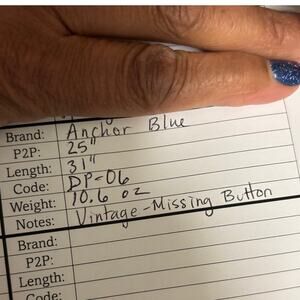 Brand: Anchor Blue
P2P: 25"
Length: 31"
Code: DP-06
Weight: 10.6 oz
Notes: Vintage-Missing Button
Brand:
P2P:
Length:
Code: